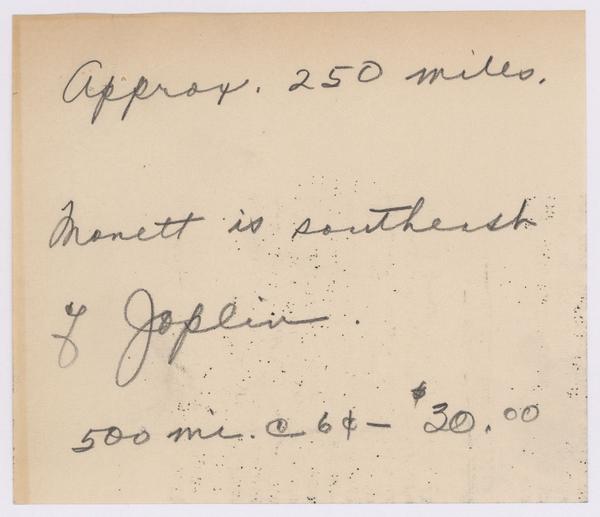 Approx. 250 miles.
Monett is southeast
of Joplin.
500 mi. @ 6¢ – $30.00